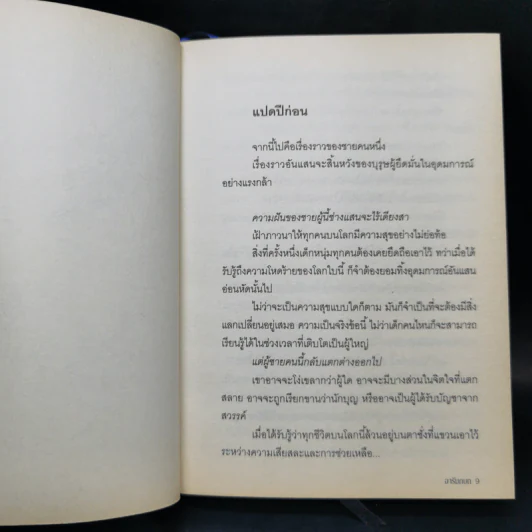 แปดปีก่อน
จากนี้ไปคือเรื่องราวของชายคนหนึ่ง
เรื่องราวอันแสนจะสิ้นหวังของบุรุษผู้ยึดมั่นในอุดมการณ์
อย่างแรงกล้า
ความฝันของชายผู้นี้ช่างแสนจะไร้เดียงสา
เฝ้าภาวนาให้ทุกคนบนโลกมีความสุขอย่างไม่ย่อท้อ
สิ่งที่ครั้งหนึ่งเด็กหนุ่มทุกคนต้องเคยยึดถือเอาไว้ ทว่าเมื่อได้
รับรู้ถึงความโหดร้ายของโลกใบนี้ ก็จำต้องยอมทิ้งอุดมการณ์อันแสน
อ่อนหัดนั้นไป
ไม่ว่าจะเป็นความสุขแบบใดก็ตาม มันก็จำเป็นที่จะต้องมีสิ่ง
แลกเปลี่ยนอยู่เสมอ ความเป็นจริงข้อนี้ ไม่ว่าเด็กคนไหนก็จะสามารถ
เรียนรู้ได้ในช่วงเวลาที่เติบโตเป็นผู้ใหญ่
แต่ผู้ชายคนนี้กลับแตกต่างออกไป
เขาอาจจะโง่เขลากว่าผู้ใด อาจจะมีบางส่วนในจิตใจที่แตก
สลาย อาจจะถูกเรียกขานว่านักบุญ หรืออาจเป็นผู้ได้รับบัญชาจาก
สวรรค์
เมื่อได้รับรู้ว่าทุกชีวิตบนโลกนี้ล้วนอยู่บนตาชั่งที่แขวนเอาไว้
ระหว่างความเสียสละและการช่วยเหลือ...
9